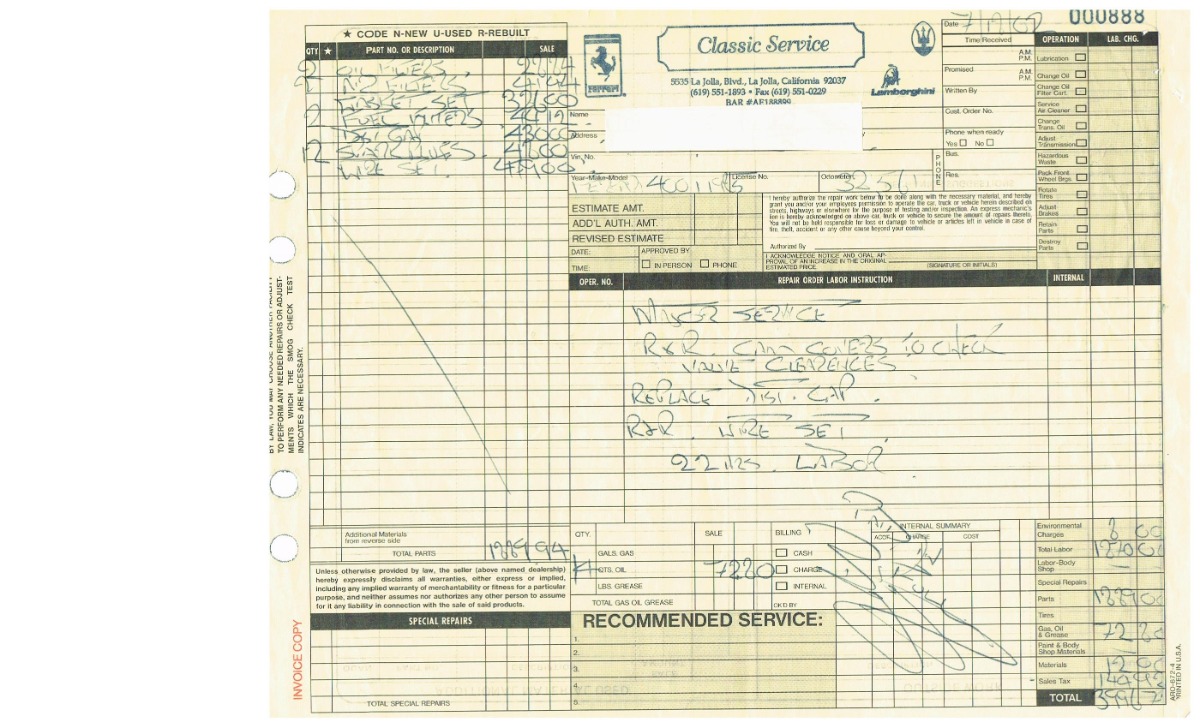 ★ CODE N-NEW U-USED R-REBUILT
QTY. ★ PART NO. OR DESCRIPTION SALE
2 OIL FILTERS
2 AIR FILTERS
GASKET SET
2 FUEL FILTERS 4412
DIST. CAP 43000
12 SPARK PLUGS.
WIRE SET.
Classic Service
5535 La Jolla, Blvd., La Jolla, California 92037
(619) 551-1893 • Fax (619) 551-0229
BAR #AF188899
Ferrari
Lamborghini
000888
Date
Time Received A.M. P.M.
Promised A.M. P.M.
Written By
Cust. Order No.
Phone when ready
Yes No
PHONE
Bus.
Res.
Name
Address
Vin. No.
Year-Make-Model License No. Odometer
400i 1985
OPERATION LAB. CHG.
Lubrication
Change Oil
Change Oil Filter Cart.
Service Air Cleaner
Change Trans. Oil
Adjust Transmission
Hazardous Waste
Pack Front Wheel Brgs.
Rotate Tires
Adjust Brakes
Retain Parts
Destroy Parts
ESTIMATE AMT.
ADD'L AUTH. AMT.
REVISED ESTIMATE
DATE: APPROVED BY
TIME: IN PERSON PHONE
I hereby authorize the repair work below to be done along with the necessary material, and hereby
grant you and/or your employees permission to operate the car, truck or vehicle herein described on
streets, highways or elsewhere for the purpose of testing and/or inspection. An express mechanic's
lien is hereby acknowledged on above car, truck or vehicle to secure the amount of repairs thereto.
You will not be held responsible for loss or damage to vehicle or articles left in vehicle in case of
fire, theft, accident or any other cause beyond your control.
Authorized By
I ACKNOWLEDGE NOTICE AND ORAL AP-
PROVAL OF AN INCREASE IN THE ORIGINAL
ESTIMATED PRICE. (SIGNATURE OR INITIALS)
OPER. NO. REPAIR ORDER LABOR INSTRUCTION INTERNAL
MASTER SERVICE
R&R. CAM COVERS TO CHECK
VALVE CLEARENCES
REPLACE DIST. CAP.
R&R. WIRE SET
22 HRS. LABOR
TO PERFORM ANY NEEDED REPAIRS OR ADJUST-
MENTS WHICH THE SMOG CHECK TEST
INDICATES ARE NECESSARY.
Additional Materials
from reverse side
TOTAL PARTS
Unless otherwise provided by law, the seller (above named dealership)
hereby expressly disclaims all warranties, either express or implied,
including any implied warranty of merchantability or fitness for a particular
purpose, and neither assumes nor authorizes any other person to assume
for it any liability in connection with the sale of said products.
SPECIAL REPAIRS
TOTAL SPECIAL REPAIRS
INVOICE COPY
QTY. SALE
GALS. GAS
QTS. OIL 7220
LBS. GREASE
TOTAL GAS OIL GREASE
BILLING
CASH
CHARGE
INTERNAL
CK'D BY
INTERNAL SUMMARY
ACCT. CHARGE COST
RECOMMENDED SERVICE:
1.
2.
3.
4.
5.
Environmental Charges
Total Labor
Labor-Body Shop
Special Repairs
Parts
Tires
Gas, Oil & Grease
Paint & Body Shop Materials
Materials 12 00
Sales Tax
TOTAL
ARO-672-4
PRINTED IN U.S.A.